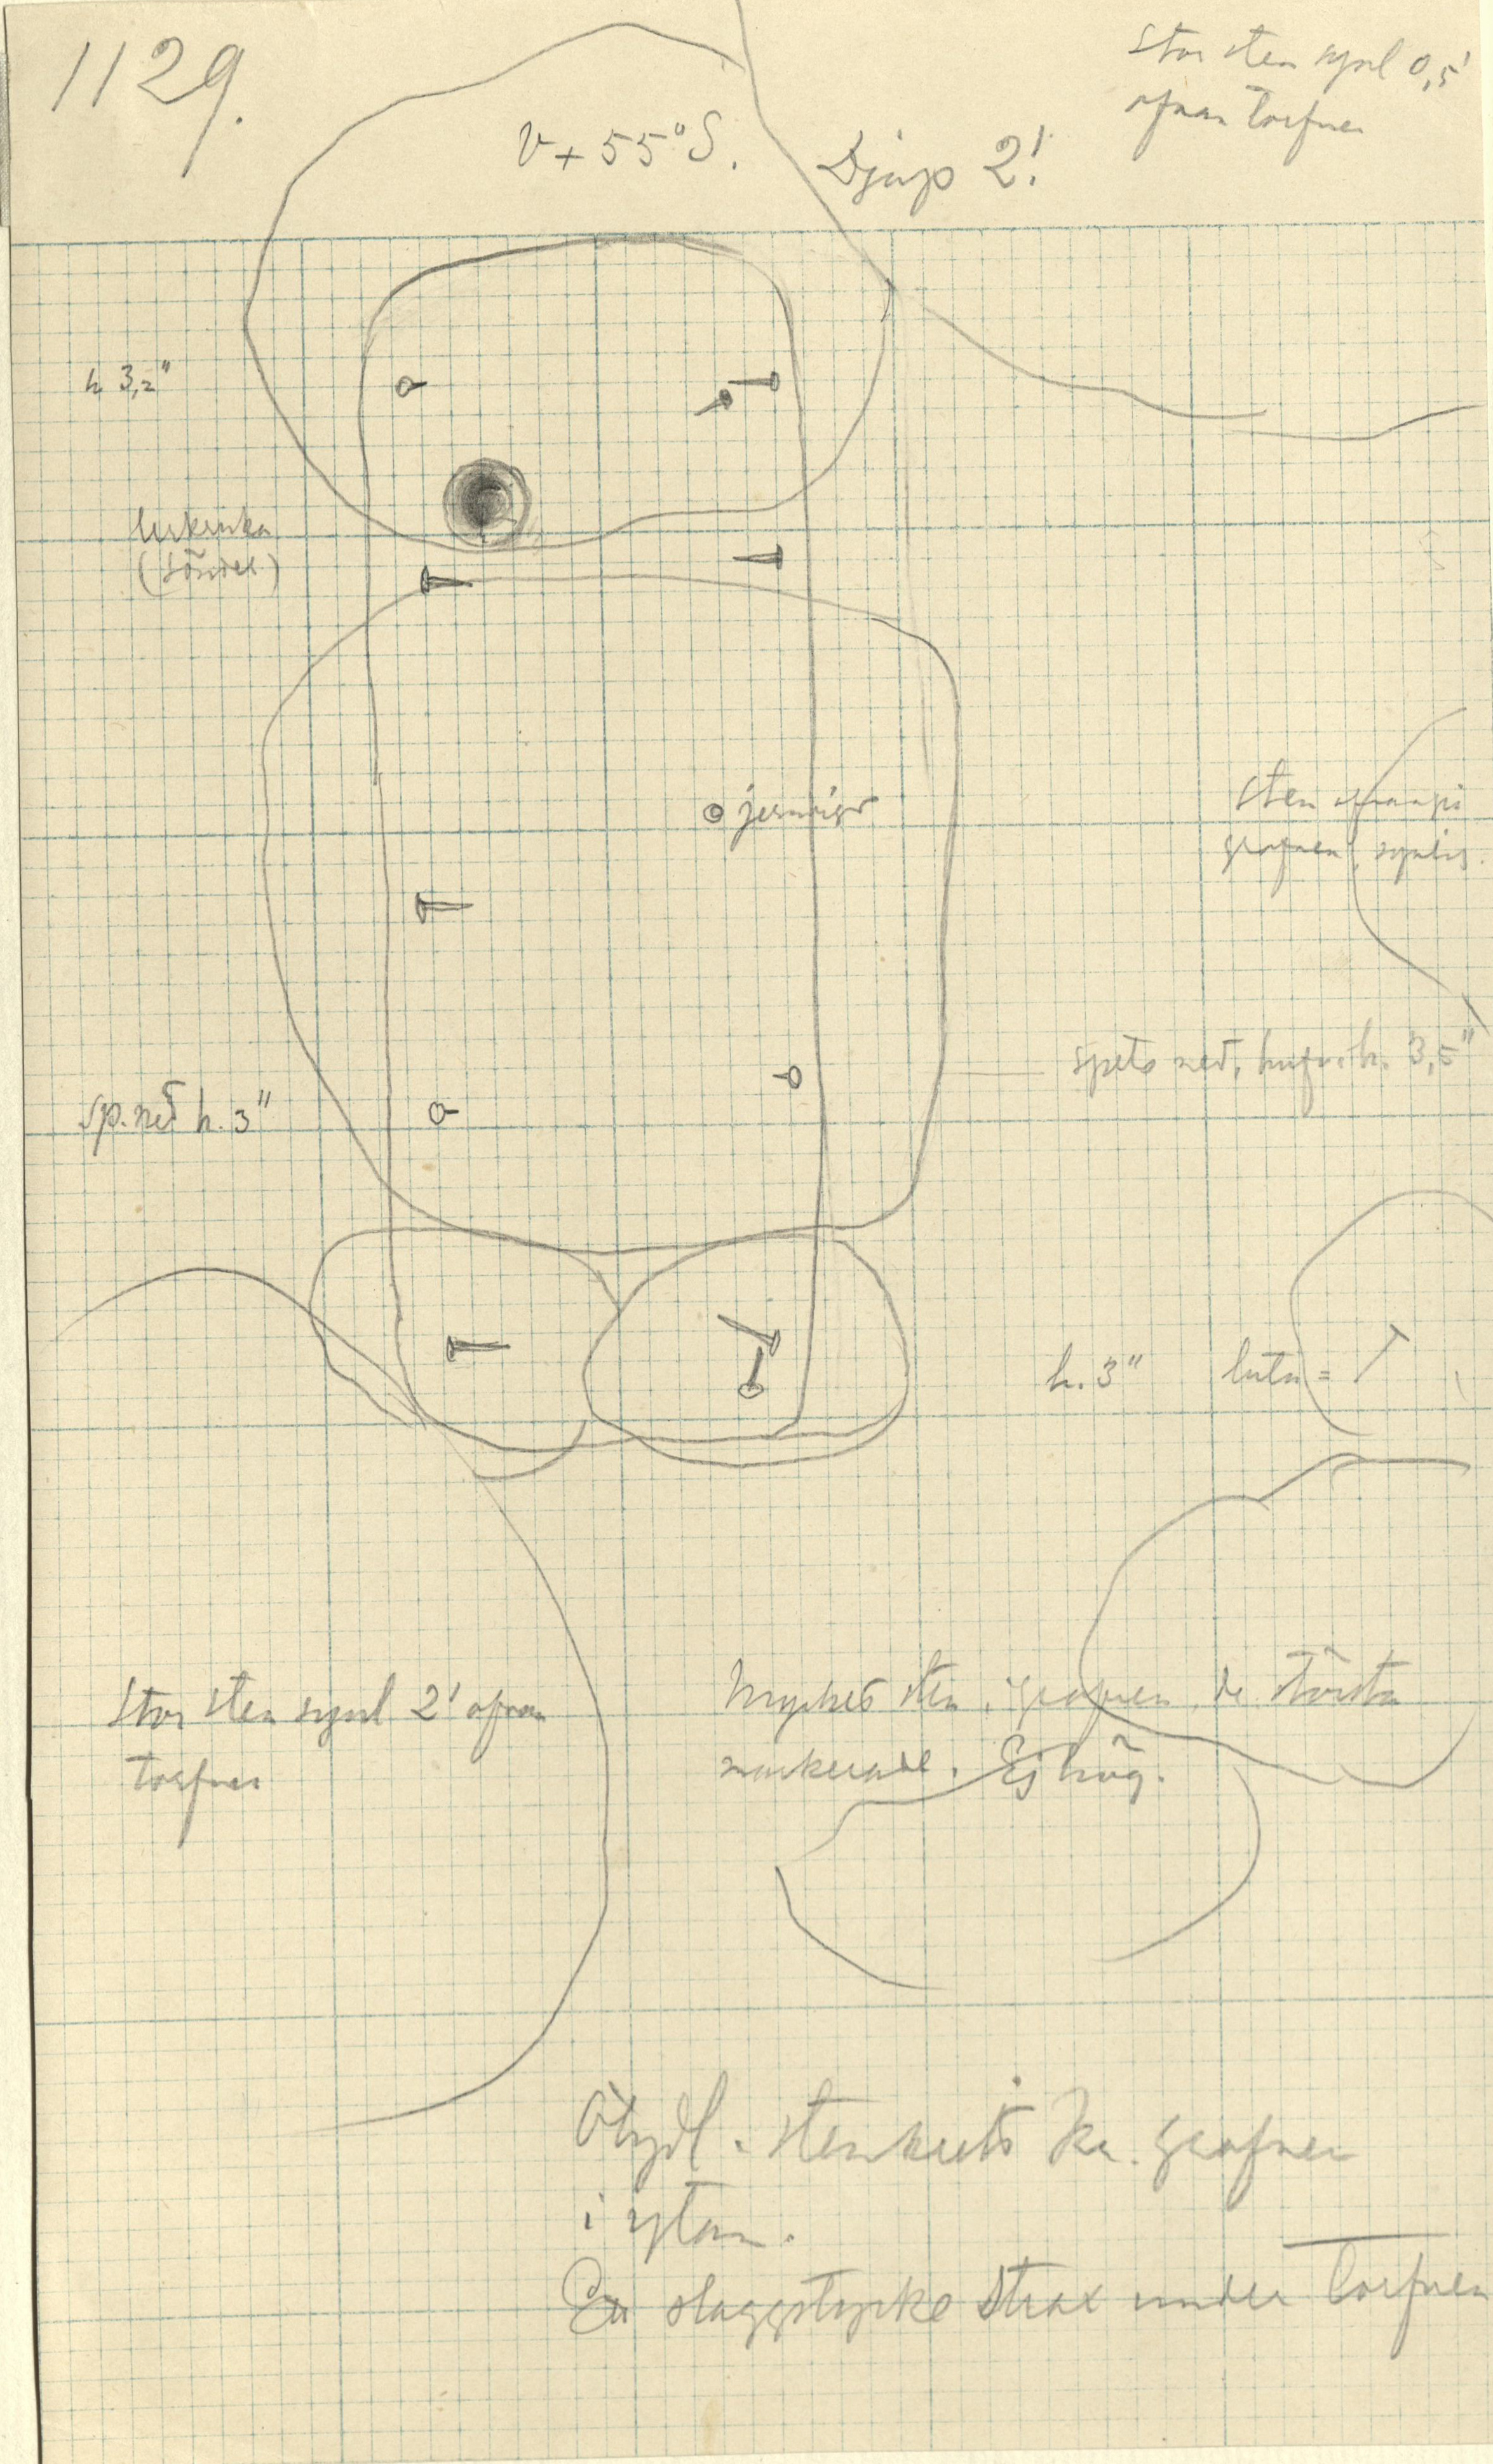 1129.
Stor sten synl 0,5'
ofvan torfven
V + 55° S.
Djup 2!
h 3,2"
lerkruka
(sönder)
jernring
Sten ofvanpå
grafven, synlig.
spets ned, hufvu h. 3,5"
sp. ned h. 3"
h. 3"
luta =
Stor sten synl 2' ofvan
torfven
Mycket sten i grafven, de största
markerade. Ej hög.
Otydl. stenkrets kr. grafven
i ytan.
En slaggstycke strax under torfven